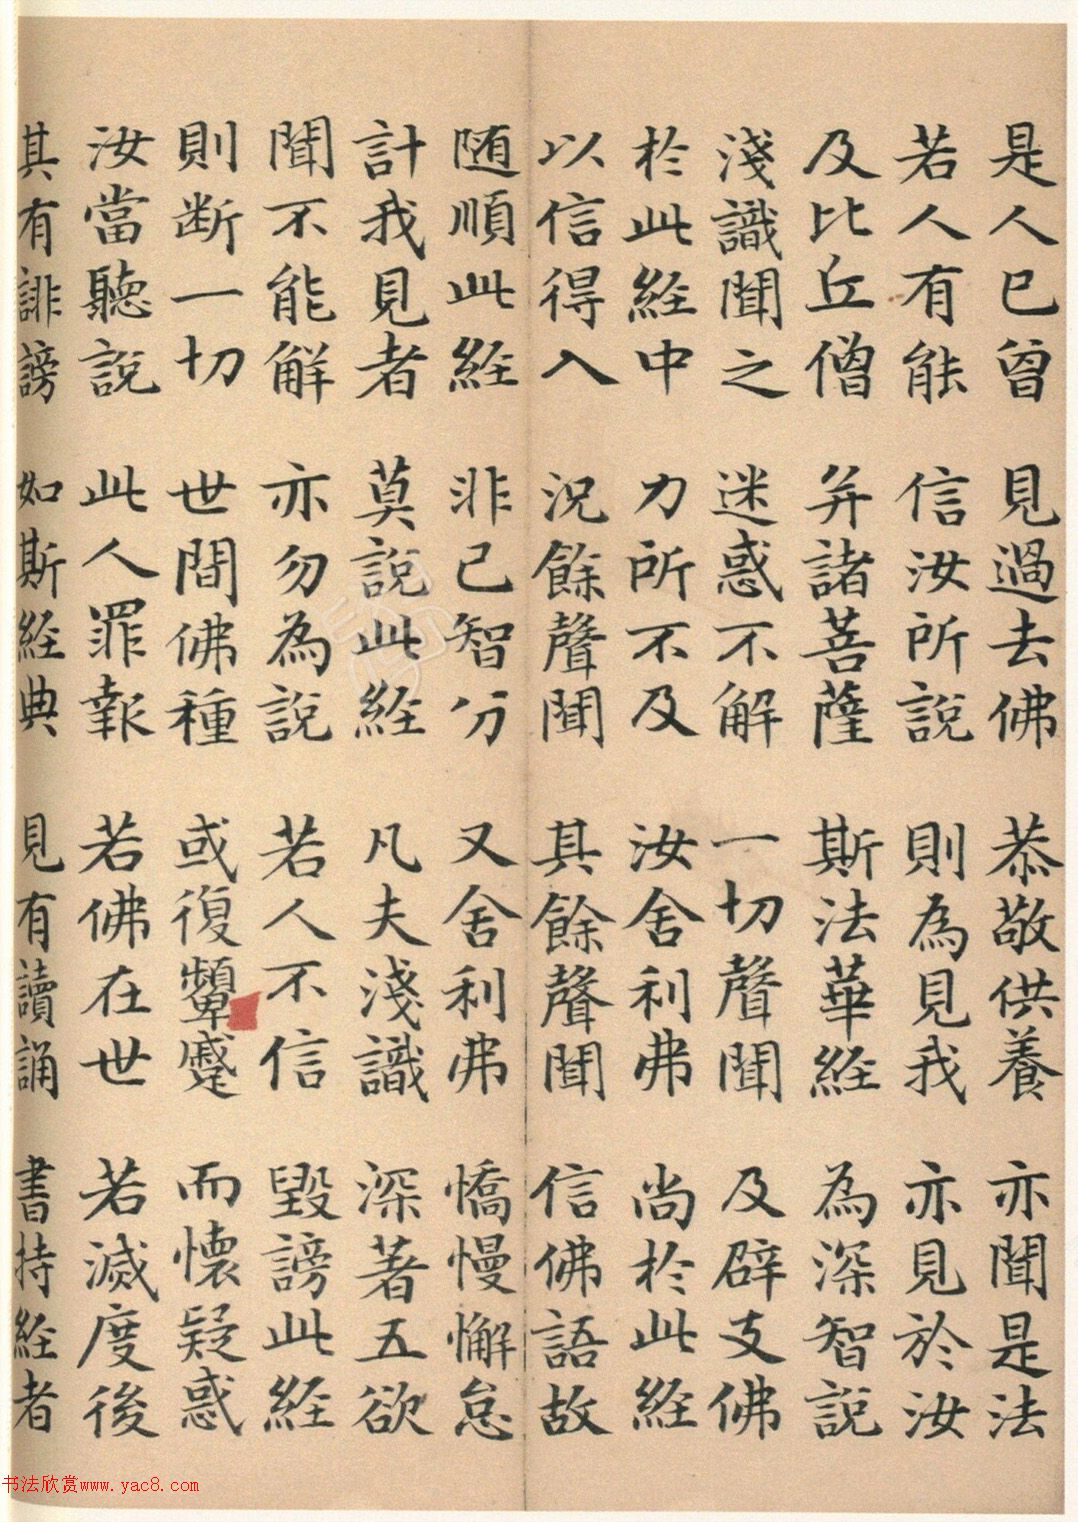 是人已曾 見過去佛 恭敬供養 亦聞是法
若人有能 信汝所說 則為見我 亦見於汝
及比丘僧 并諸菩薩 斯法華經 為深智說
淺識聞之 迷惑不解 一切聲聞 及辟支佛
於此經中 力所不及 汝舍利弗 尚於此經
以信得入 況餘聲聞 其餘聲聞 信佛語故
随順此經 非己智分 又舍利弗 憍慢懈怠
計我見者 莫說此經 凡夫淺識 深著五欲
聞不能解 亦勿為說 若人不信 毀謗此經
則断一切 世間佛種 或復顰蹙 而懷疑惑
汝當聽說 此人罪報 若佛在世 若滅度後
其有誹謗 如斯經典 見有讀誦 書持經者
书法欣赏www.yac8.com